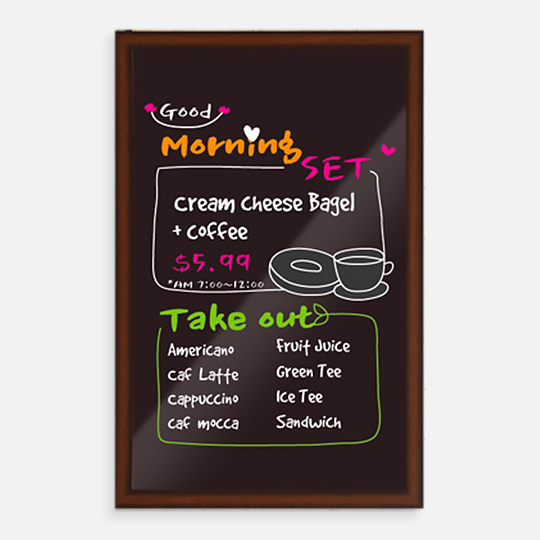 Good
Morning
SET
Cream Cheese Bagel
+ Coffee
$5.99
*AM 7:00~12:00
Take out
Americano
Caf Latte
Cappuccino
Caf mocca
Fruit Juice
Green Tee
Ice Tee
Sandwich